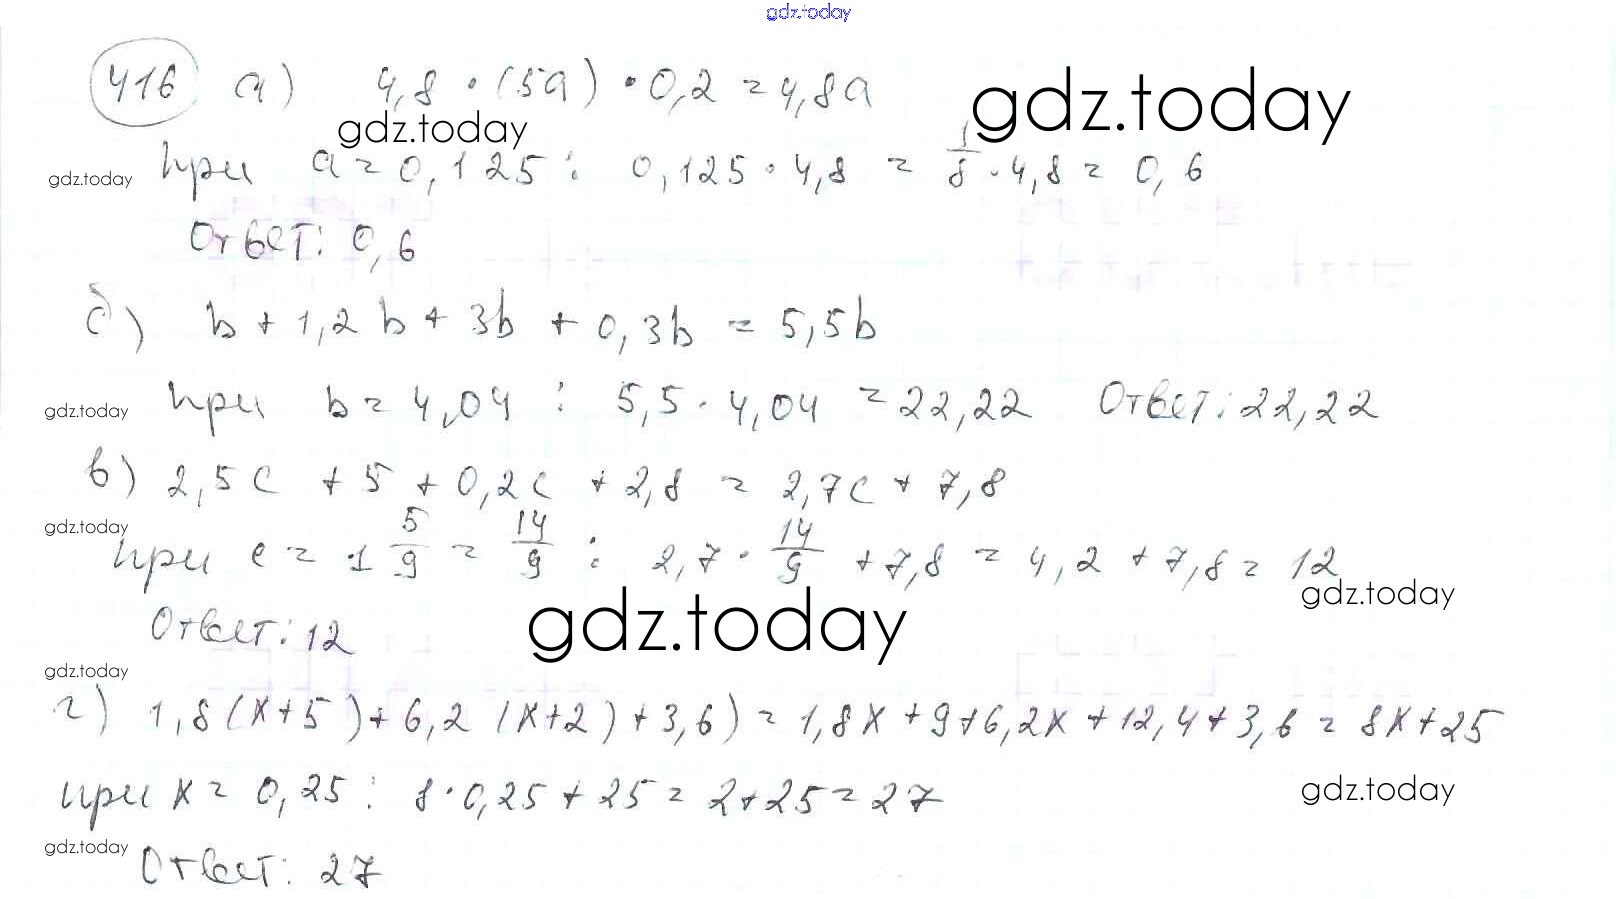 gdz.today
416 а) 4,8 · (5a) · 0,2 = 4,8a
gdz.today
gdz.today
gdz.today при a = 0,125 : 0,125 · 4,8 = 1/8 · 4,8 = 0,6
Ответ: 0,6
б) b + 1,2b + 3b + 0,3b = 5,5b
gdz.today при b = 4,04 : 5,5 · 4,04 = 22,22 Ответ: 22,22
в) 2,5c + 5 + 0,2c + 2,8 = 2,7c + 7,8
gdz.today при c = 1 5/9 = 14/9 : 2,7 · 14/9 + 7,8 = 4,2 + 7,8 = 12
gdz.today
Ответ: 12 gdz.today
gdz.today
г) 1,8(x+5)+6,2(x+2)+3,6) = 1,8x+9+6,2x+12,4+3,6 = 8x+25
при x = 0,25 : 8·0,25+25 = 2+25 = 27 gdz.today
gdz.today
Ответ: 27